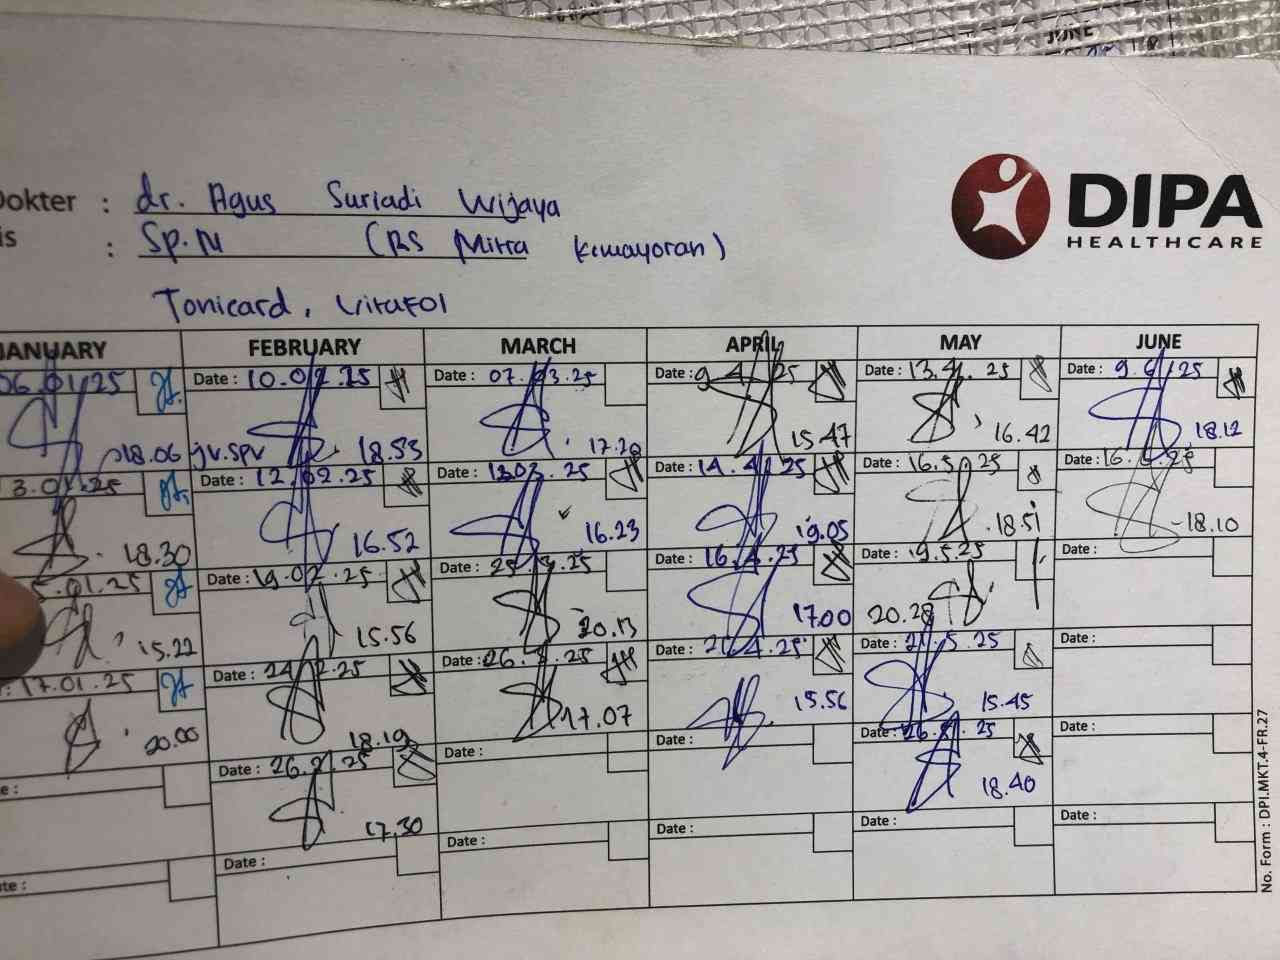 JUNE
Dokter : dr. Agus Suriadi Wijaya
is : Sp.N (RS Mitra Kemayoran)
Tonicard, Vitafol
DIPA
HEALTHCARE
JANUARY FEBRUARY MARCH APRIL MAY JUNE
06.01.25 Date : 10.02.25 Date : 07.03.25 Date : 9.4.25 Date : 13.4.25 Date : 9.6.25
18.06 jv.spv 18.33 17.20 15.47 16.42 18.12
3.01.25 Date : 12.02.25 Date : 12.03.25 Date : 14.4.25 Date : 16.5.25 Date : 16.6.25
18.30 16.52 16.23 19.05 18.51 18.10
.01.25 Date : 19.02.25 Date : 25.3.25 Date : 16.4.25 Date : 19.5.25 Date :
15.22 15.56 20.13 17.00 20.28
: 17.01.25 Date : 24.02.25 Date : 26.3.25 Date : 21.4.25 Date : 21.5.25 Date :
20.00 18.19 17.07 15.56 15.45
e : Date : 26.2.25 Date : Date : Date : 26.5.25 Date :
17.30 18.40
te : Date : Date : Date : Date : Date :
No. Form : DPI.MKT.4-FR.27